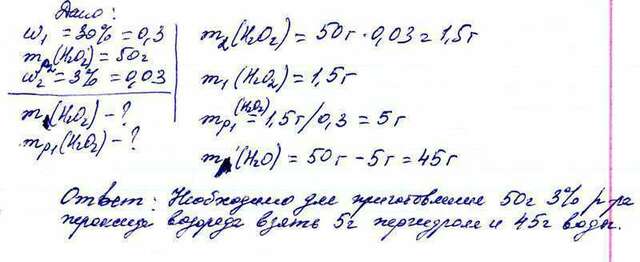 Дано:
w₁ = 30% = 0,3
mр₂(H₂O₂) = 50г
w₂ = 3% = 0,03
m(H₂O) - ?
mр₁(H₂O₂) - ?
m₂(H₂O₂) = 50г · 0,03 = 1,5г
m₁(H₂O₂) = 1,5г
mр₁(H₂O₂) = 1,5г/0,3 = 5г
m(H₂O) = 50г - 5г = 45г
Ответ: Необходимо для приготовления 50г 3% р-ра
пероксида водорода взять 5г пергидроли и 45г воды.